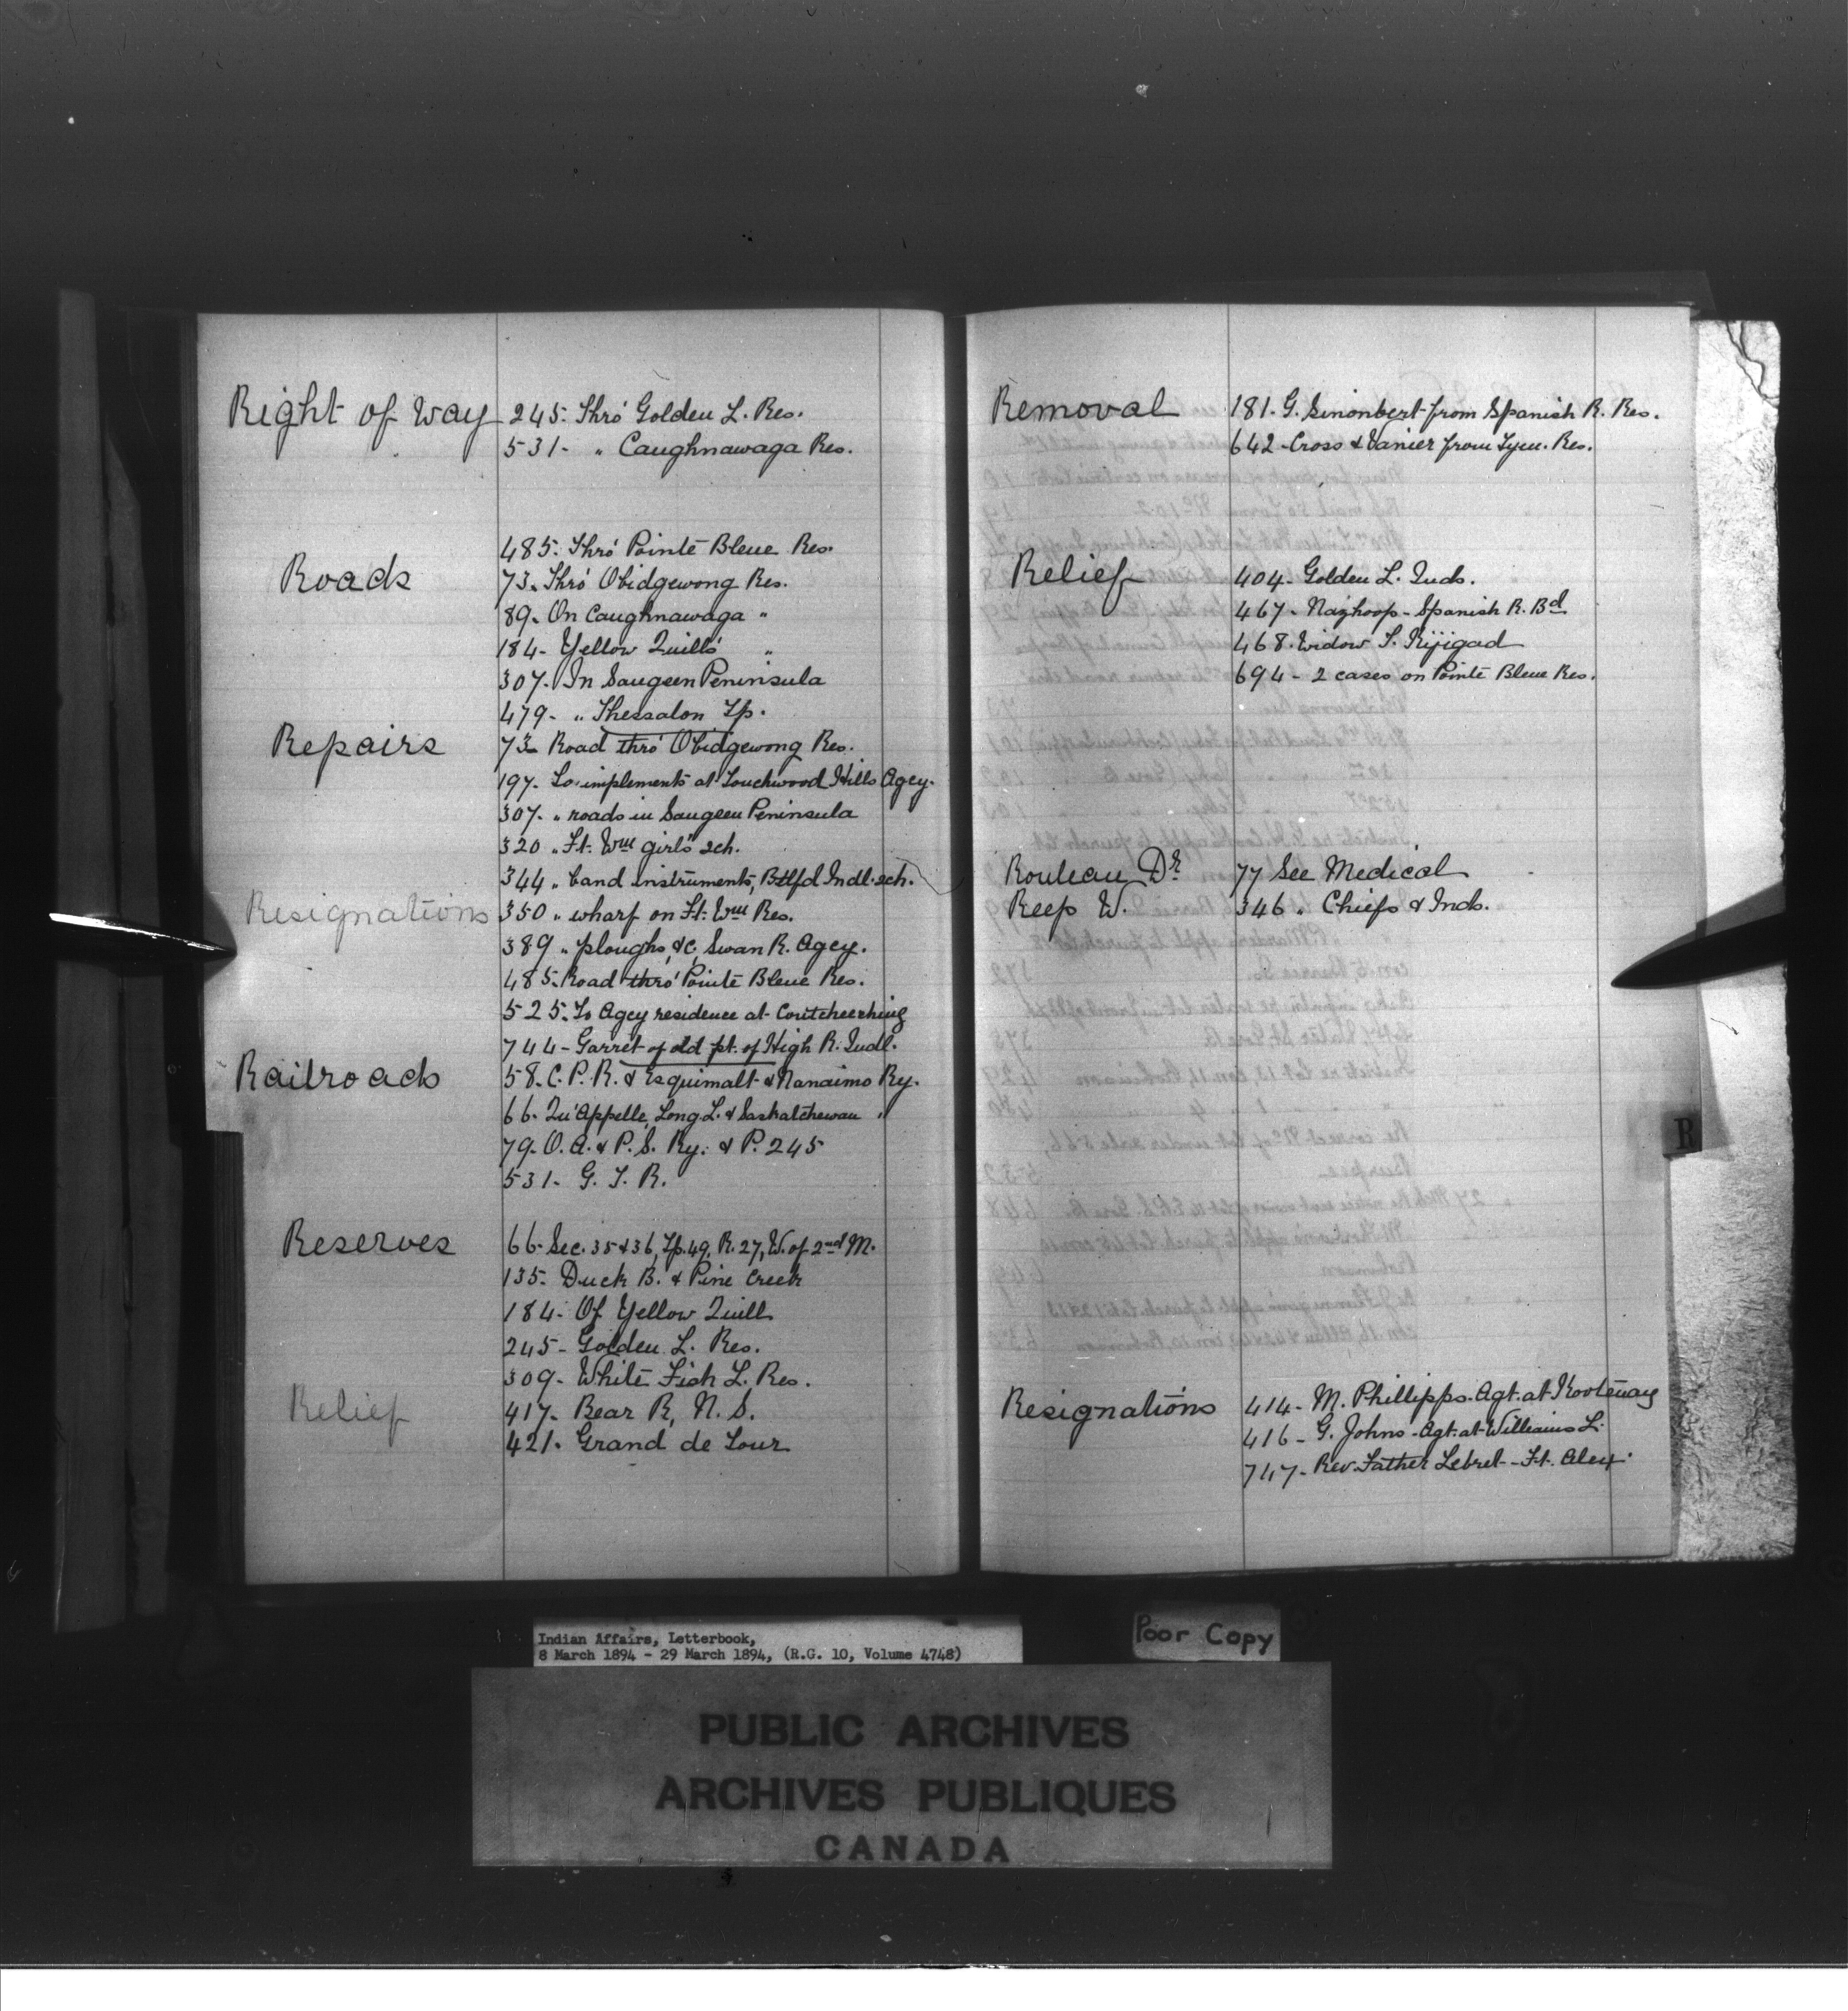 Right of Way 245. Thro' Golden L. Res.
531- " Caughnawaga Res.
485. Thro' Pointe Bleue Res.
Roads 73. Thro' Obidgewong Res.
89. On Caughnawaga "
184- Yellow Quill's "
307. In Saugeen Peninsula
479- " Thessalon Tp.
Repairs 73- Road thro' Obidgewong Res.
197. To implements at Touchwood Hills Agcy.
307. " roads in Saugeen Peninsula
320 " Ft. Wm girls' sch.
344 " band instruments, Btlfd Indl. sch.
Resignations 350 " wharf on Ft. Wm Res.
389 " ploughs, &c, Swan R. Agcy.
485. Road thro' Pointe Bleue Res.
525. To Agcy residence at Coutcheeching
744- Garret of old pt. of High R. Indl.
Railroads 58. C. P. R. & Esquimalt & Nanaimo Ry.
66. Qu'Appelle, Long L. & Saskatchewan "
79. O. A. & P. S. Ry. & P. 245
531- G. T. R.
Reserves 66. Sec. 35 & 36, Tp. 49, R. 27, W. of 2nd M.
135- Duck B. & Pine Creek
184- Of Yellow Quill
245- Golden L. Res.
309- White Fish L. Res.
Relief 417- Bear R, N. S.
421- Grand de Tour
Removal 181. G. Sinonbert from Spanish R. Res.
642- Cross & Vanier from Tyen. Res.
Relief 404- Golden L. Inds.
467- Nazhoop - Spanish R. Bd
468. Widow T. Kijigad
694- 2 cases on Pointe Bleue Res.
Rouleau Dr 77 See Medical
Reep W. 346 " Chiefs & Inds.
Resignations 414- M. Phillipps - Agt. at Kootenay
416- G. Johns - Agt. at Williams L.
747- Rev. Father Lebret - Ft. Alex.
R
Indian Affairs, Letterbook,
8 March 1894 - 29 March 1894, (R.G. 10, Volume 4748)
Poor Copy
PUBLIC ARCHIVES
ARCHIVES PUBLIQUES
CANADA